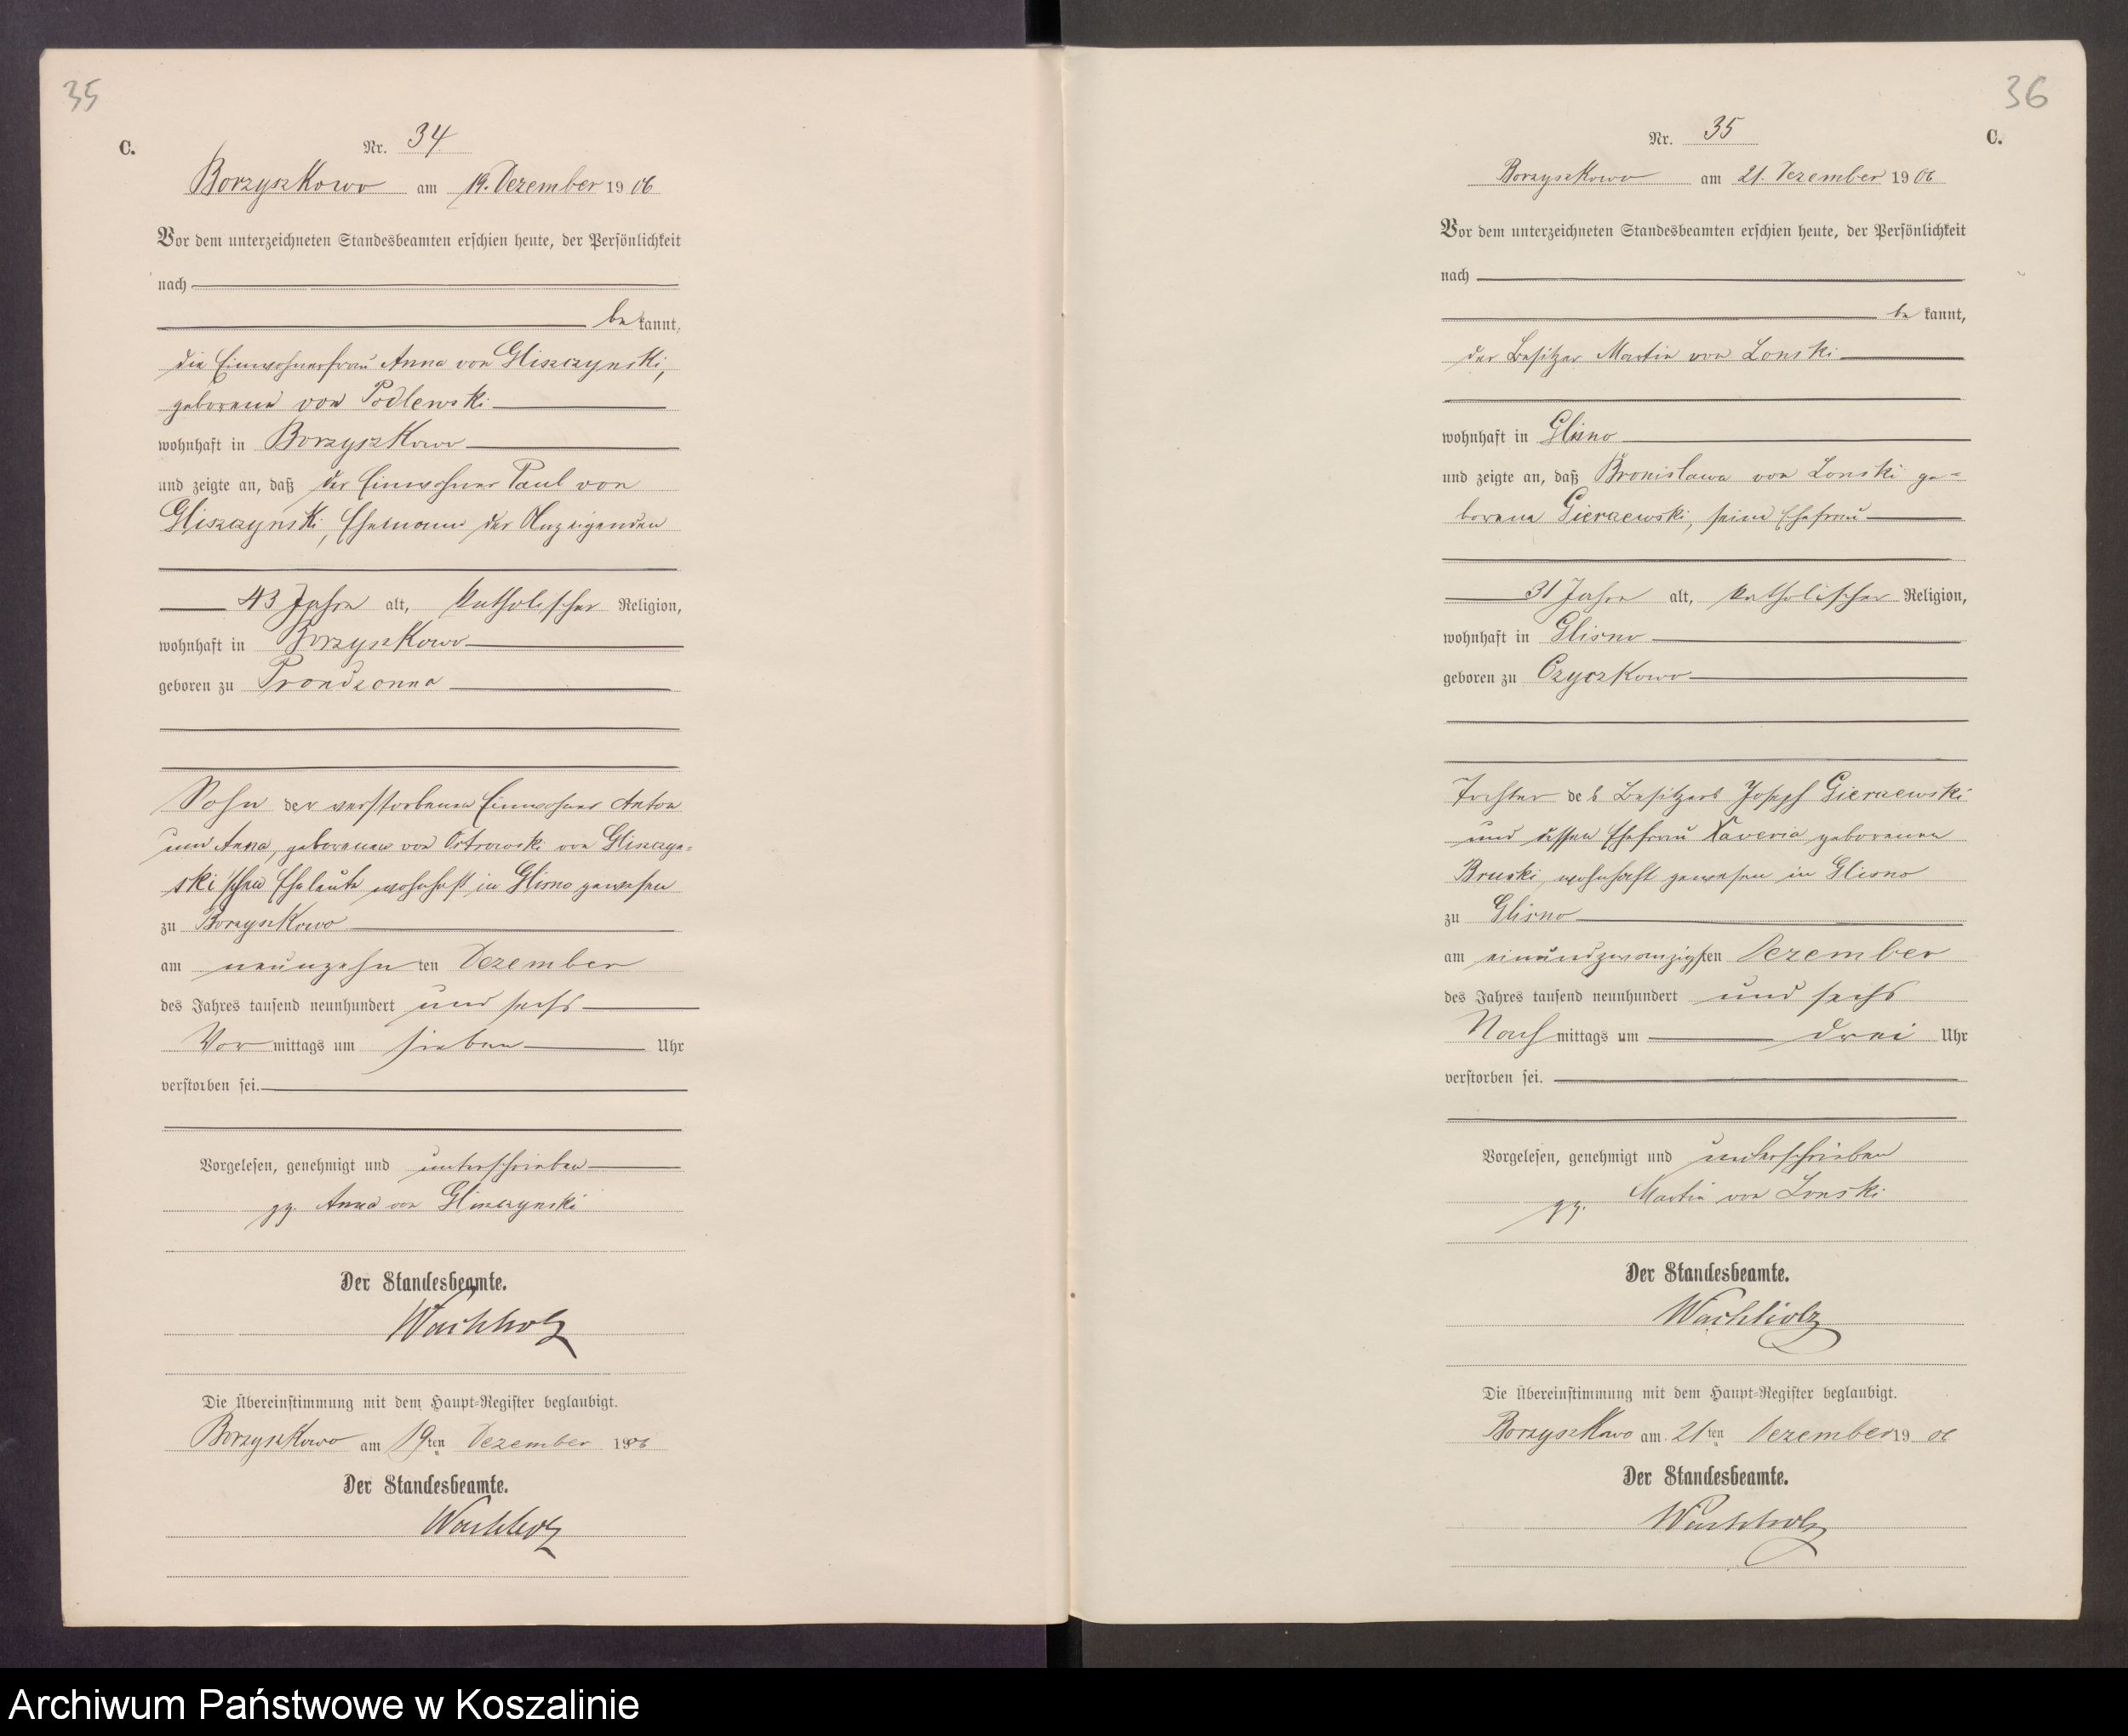 35
C.
Nr. 34
Borzyszkowo am 19. Dezember 1906
Vor dem unterzeichneten Standesbeamten erschien heute, der Persönlichkeit
nach
be kannt,
die Einwohnerfrau Anna von Gliszczynski,
geborene von Podlewski
wohnhaft in Borzyszkowo
und zeigte an, daß der Einwohner Paul von
Gliszczynski, Ehemann der Anzeigenden
43 Jahre alt, katholischer Religion,
wohnhaft in Borzyszkowo
geboren zu Prondzonna
Sohn der verstorbenen Einwohner Anton
und Anna, geborenen von Ostrowski von Gliszczyn=
ski'schen Eheleute wohnhaft in Glisno gewesen
zu Borzyszkowo
am neunzehn ten Dezember
des Jahres tausend neunhundert und sechs
Vor mittags um sieben Uhr
verstorben sei.
Vorgelesen, genehmigt und unterschrieben
gz. Anna von Gliszczynski
Der Standesbeamte.
Wachholz
Die Übereinstimmung mit dem Haupt-Register beglaubigt.
Borzyszkowo am 19ten Dezember 1906
Der Standesbeamte.
Wachholz
36
C.
Nr. 35
Borzyszkowo am 21. Dezember 1906
Vor dem unterzeichneten Standesbeamten erschien heute, der Persönlichkeit
nach
be kannt,
der Besitzer Martin von Lonski
wohnhaft in Glisno
und zeigte an, daß Bronislawa von Lonski ge=
borene Gierzewski, seine Ehefrau
31 Jahre alt, katholischer Religion,
wohnhaft in Glisno
geboren zu Czyczkowo
Tochter des Besitzers Joseph Gierzewski
und dessen Ehefrau Xaveria geborenen
Bruski, wohnhaft gewesen in Glisno
zu Glisno
am einundzwanzigsten Dezember
des Jahres tausend neunhundert und sechs
Nach mittags um drei Uhr
verstorben sei.
Vorgelesen, genehmigt und unterschrieben
gz. Martin von Lonski
Der Standesbeamte.
Wachholz
Die Übereinstimmung mit dem Haupt-Register beglaubigt.
Borzyszkowo am 21ten Dezember 1906
Der Standesbeamte.
Wachholz
Archiwum Państwowe w Koszalinie